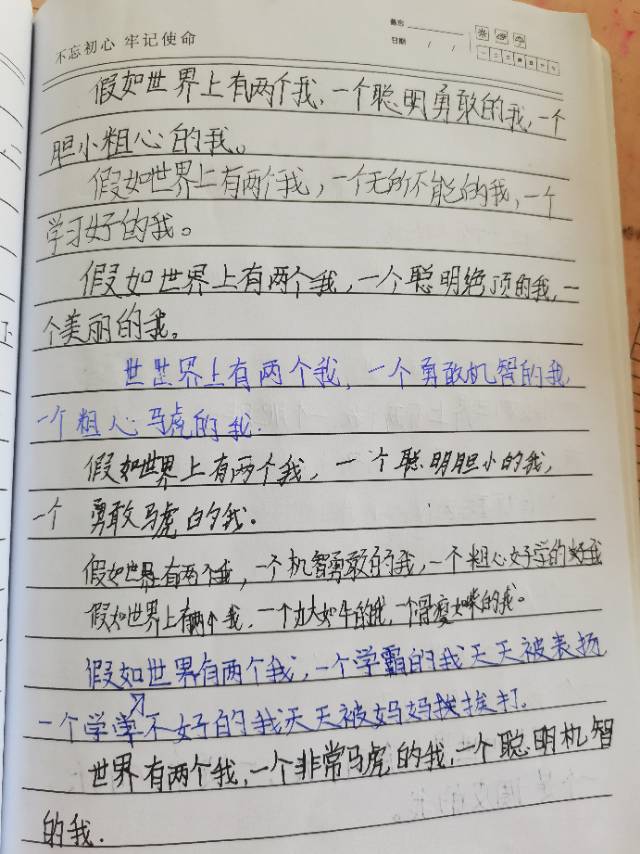 不忘初心 牢记使命
日期 / /
假如世界上有两个我,一个聪明勇敢的我,一个
胆小粗心的我。
假如世界上有两个我,一个无所不能的我,一个
学习好的我。
假如世界上有两个我,一个聪明绝顶的我,一
个美丽的我。
世世界上有两个我,一个勇敢机智的我,
一个粗心马虎的我.
假如世界上有两个我,一个聪明胆小的我,
一个 勇敢马虎的我。
假如世界有两个我,一个机智勇敢的我,一个粗心好学的我
假如世界上有两个我,一个力大如牛的我,一个骨瘦如柴的我。
假如世界有两个我,一个学霸的我天天被表扬
一个学不好的我天天被妈妈挨挨打.
世界有两个我,一个非常马虎的我,一个聪明机智
的我.